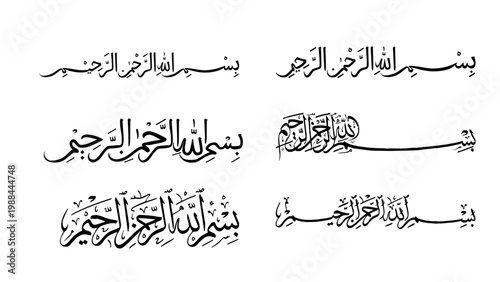 بسم الله الرحمن الرحيم
بسم الله الرحمن الرحيم
بسم الله الرحمن الرحيم
بسم الله الرحمن الرحيم
بسم الله الرحمن الرحيم
بسم الله الرحمن الرحيم
Adobe Stock | #1988444748